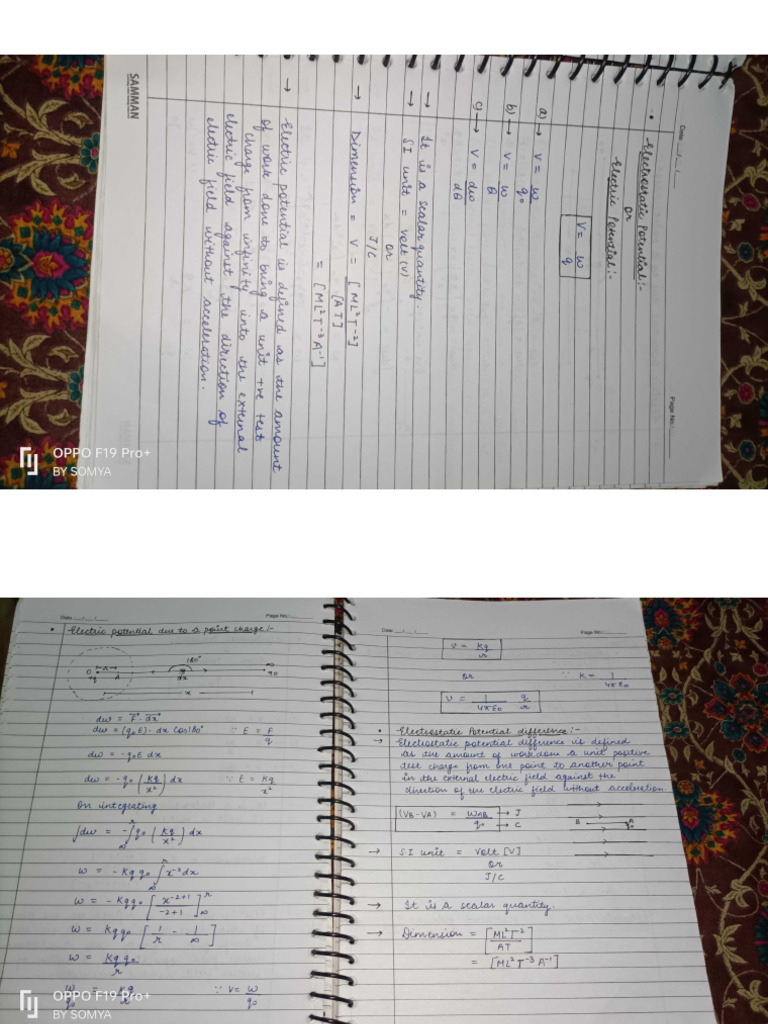 Date __/__/__
Page No.:____
• Electrostatic Potential:-
or
Electric Potential:-
V = w/q
a) → V = w/q₀
b) → V = w/θ
c) → V = dw/dθ
→ It is a scalar quantity.
→ SI unit = Volt (V)
or
J/C
→ Dimension = V = [ML²T⁻²]/[AT]
= [ML²T⁻³A⁻¹]
→ Electric potential is defined as the amount
of work done to bring a unit +ve test
charge from infinity into the external
electric field against the direction of
electric field without acceleration.
SAMMAN
OPPO F19 Pro+
BY SOMYA
Date __/__/__
Page No.:____
• Electric potential due to a point charge:-
180°
O r A dx ∞
+q q₀
x
dw = F⃗·dx⃗
dw = (q₀E)·dx Cos180° ∵ E = F/q
dw = -q₀E dx
dw = -q₀(Kq/x²)dx ∵ E = Kq/x²
on integrating
∫dw = -∫_∞^r q₀(Kq/x²)dx
w = -Kqq₀∫_∞^r x⁻²dx
w = -Kqq₀[x⁻²⁺¹/-2+1]_∞^r
w = Kqq₀[1/r - 1/∞]
w = Kqq₀/r
w/q₀ = Kq/r ∵ V = w/q₀
Date __/__/__
Page No.:____
V = Kq/r
or ∵ K = 1/4πε₀
V = 1/4πε₀ q/r
• Electrostatic Potential difference:-
→ Electrostatic potential difference is defined
as the amount of workdone a unit positive
test charge from one point to another point
in the external electric field against the
direction of the electric field without acceleration.
(VB-VA) = WAB/q₀ → J → C
B A q₀
→ SI unit = Volt [V]
or
J/C
→ It is a scalar quantity.
→ Dimension = [ML²T⁻²/AT]
= [ML²T⁻³A⁻¹]
OPPO F19 Pro+
BY SOMYA